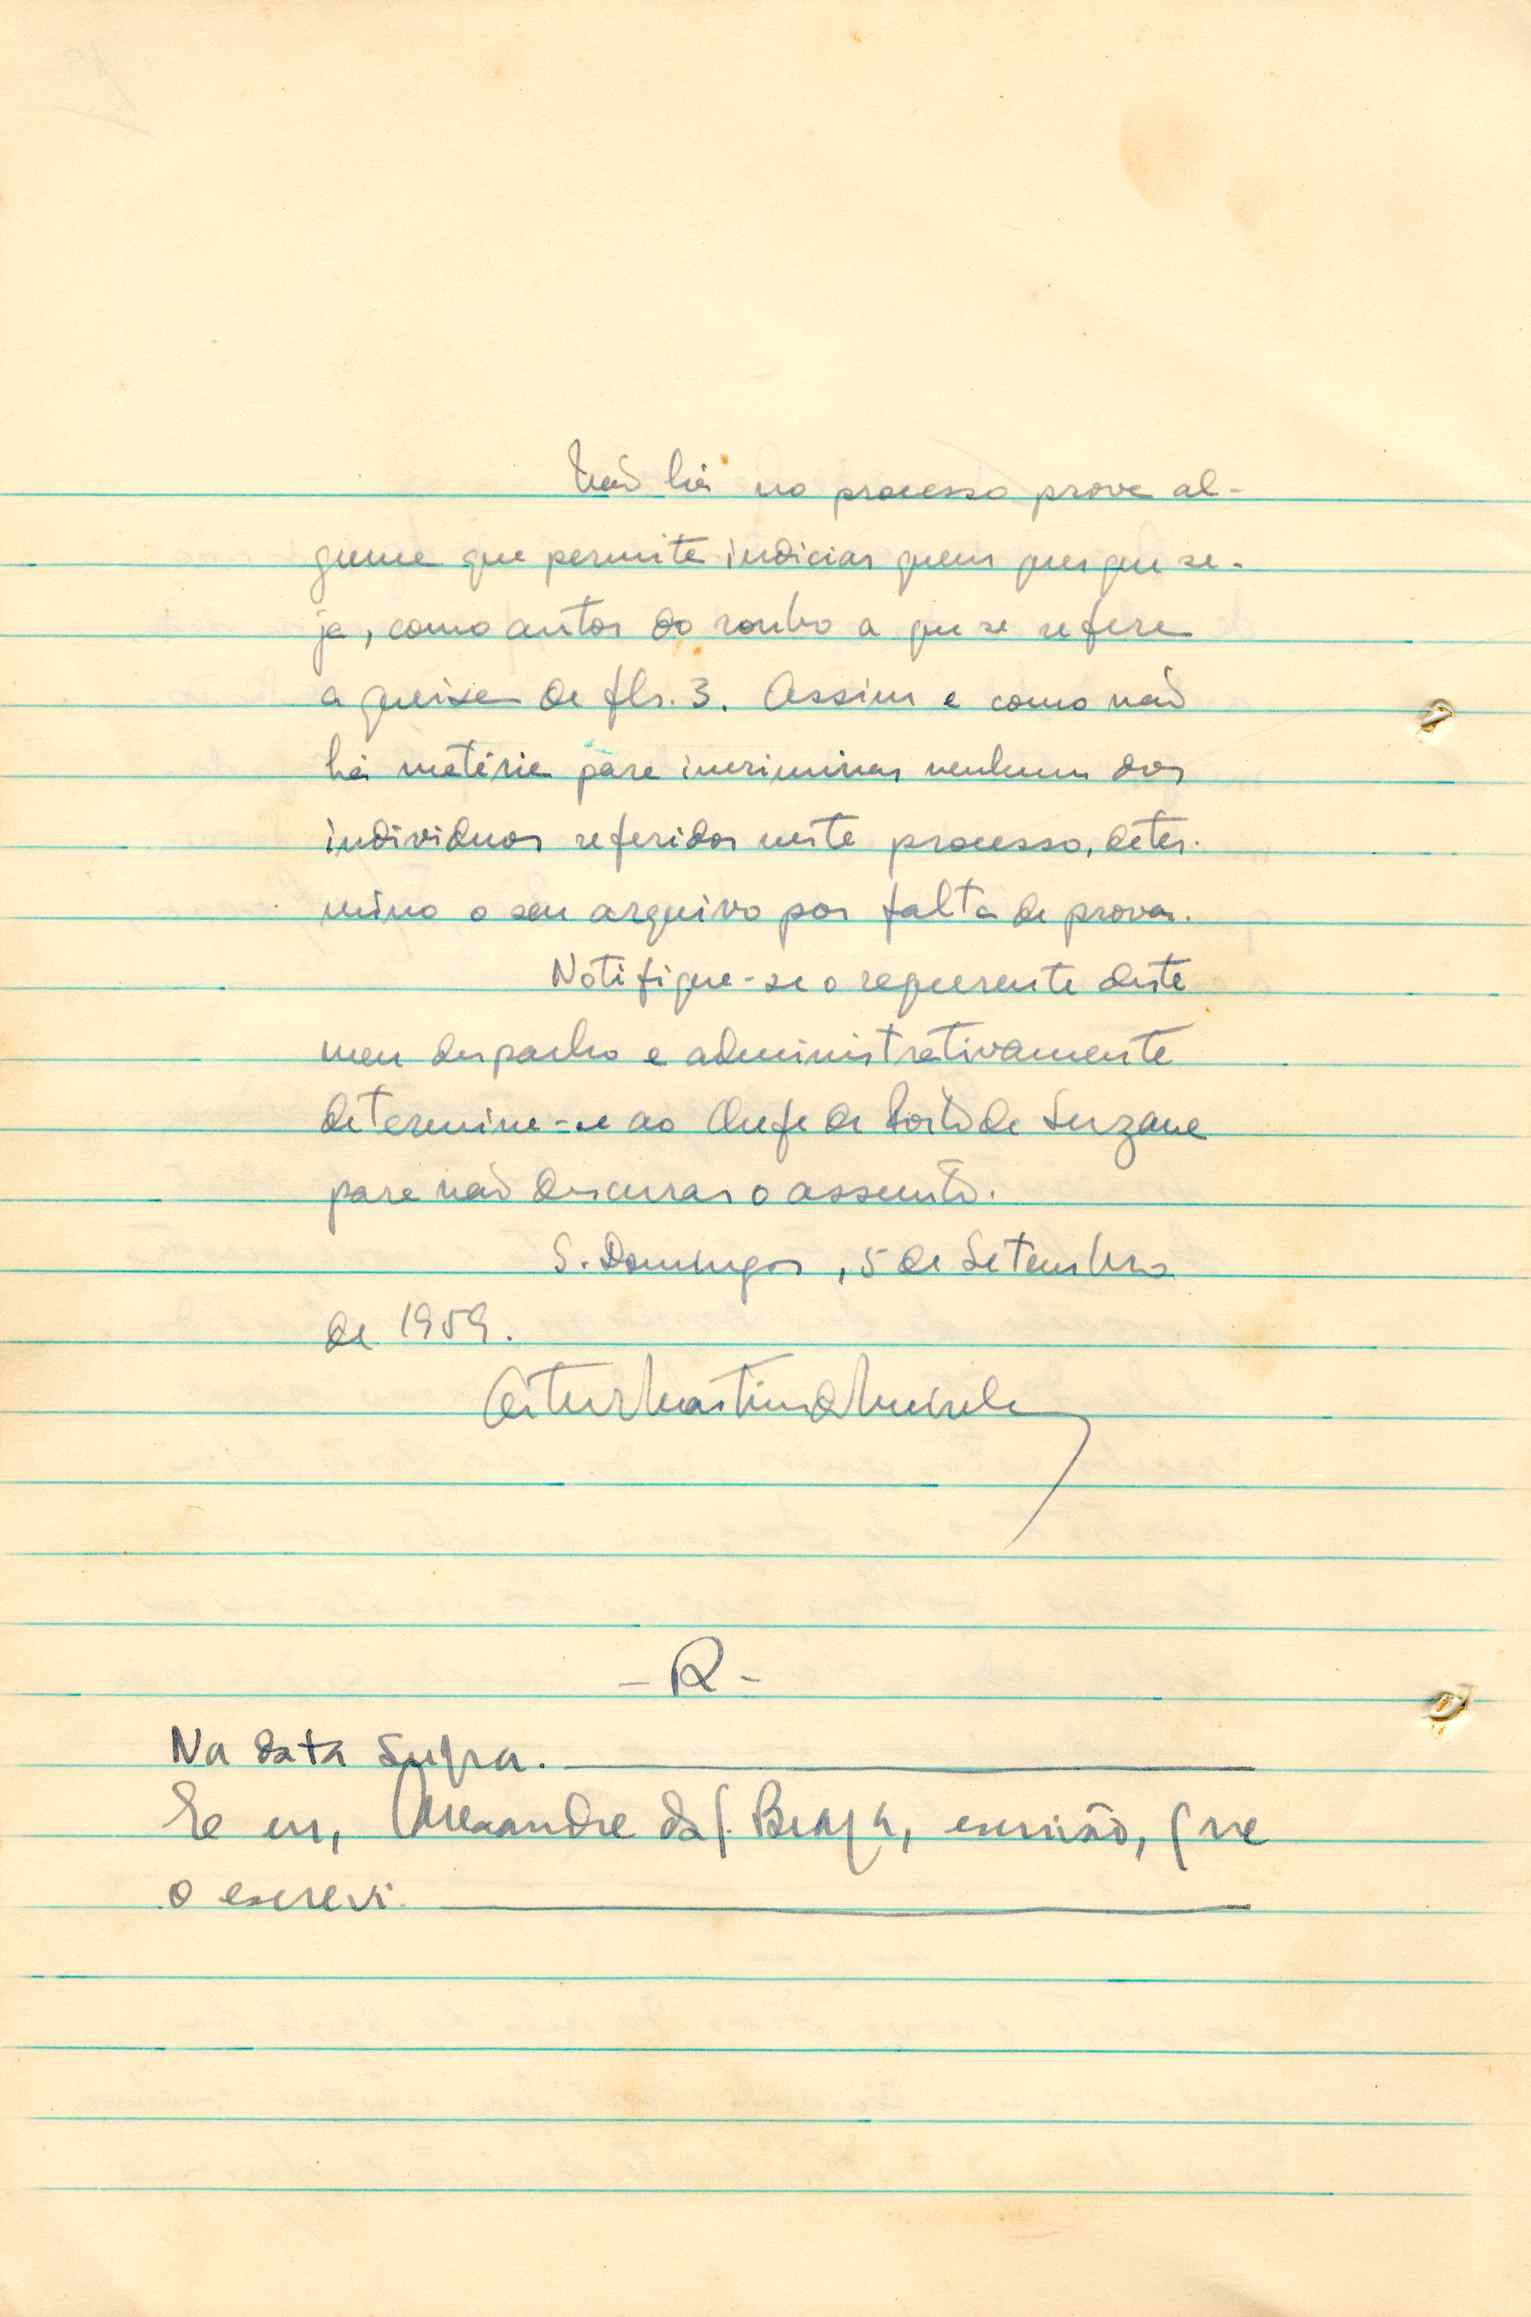 Não há no processo prova al-
guma que permita indiciar quem quer que se-
ja, como autor do roubo a que se refere
a queixa de fls. 3. Assim e como não
há matéria para incriminar nenhum dos
individuos referidos neste processo, deter-
mino o seu arquivo por falta de provas.
Notifique-se o requerente deste
meu despacho e administrativamente
determine-se ao Chefe de Posto de Suzana
para não descurar o assunto.
S. Domingos, 5 de Setembro
de 1959.
Artur Martins de Meireles
- R -
Na data supra.
E eu, Alexandre da S. Braga, escrivão, que
o escrevi.